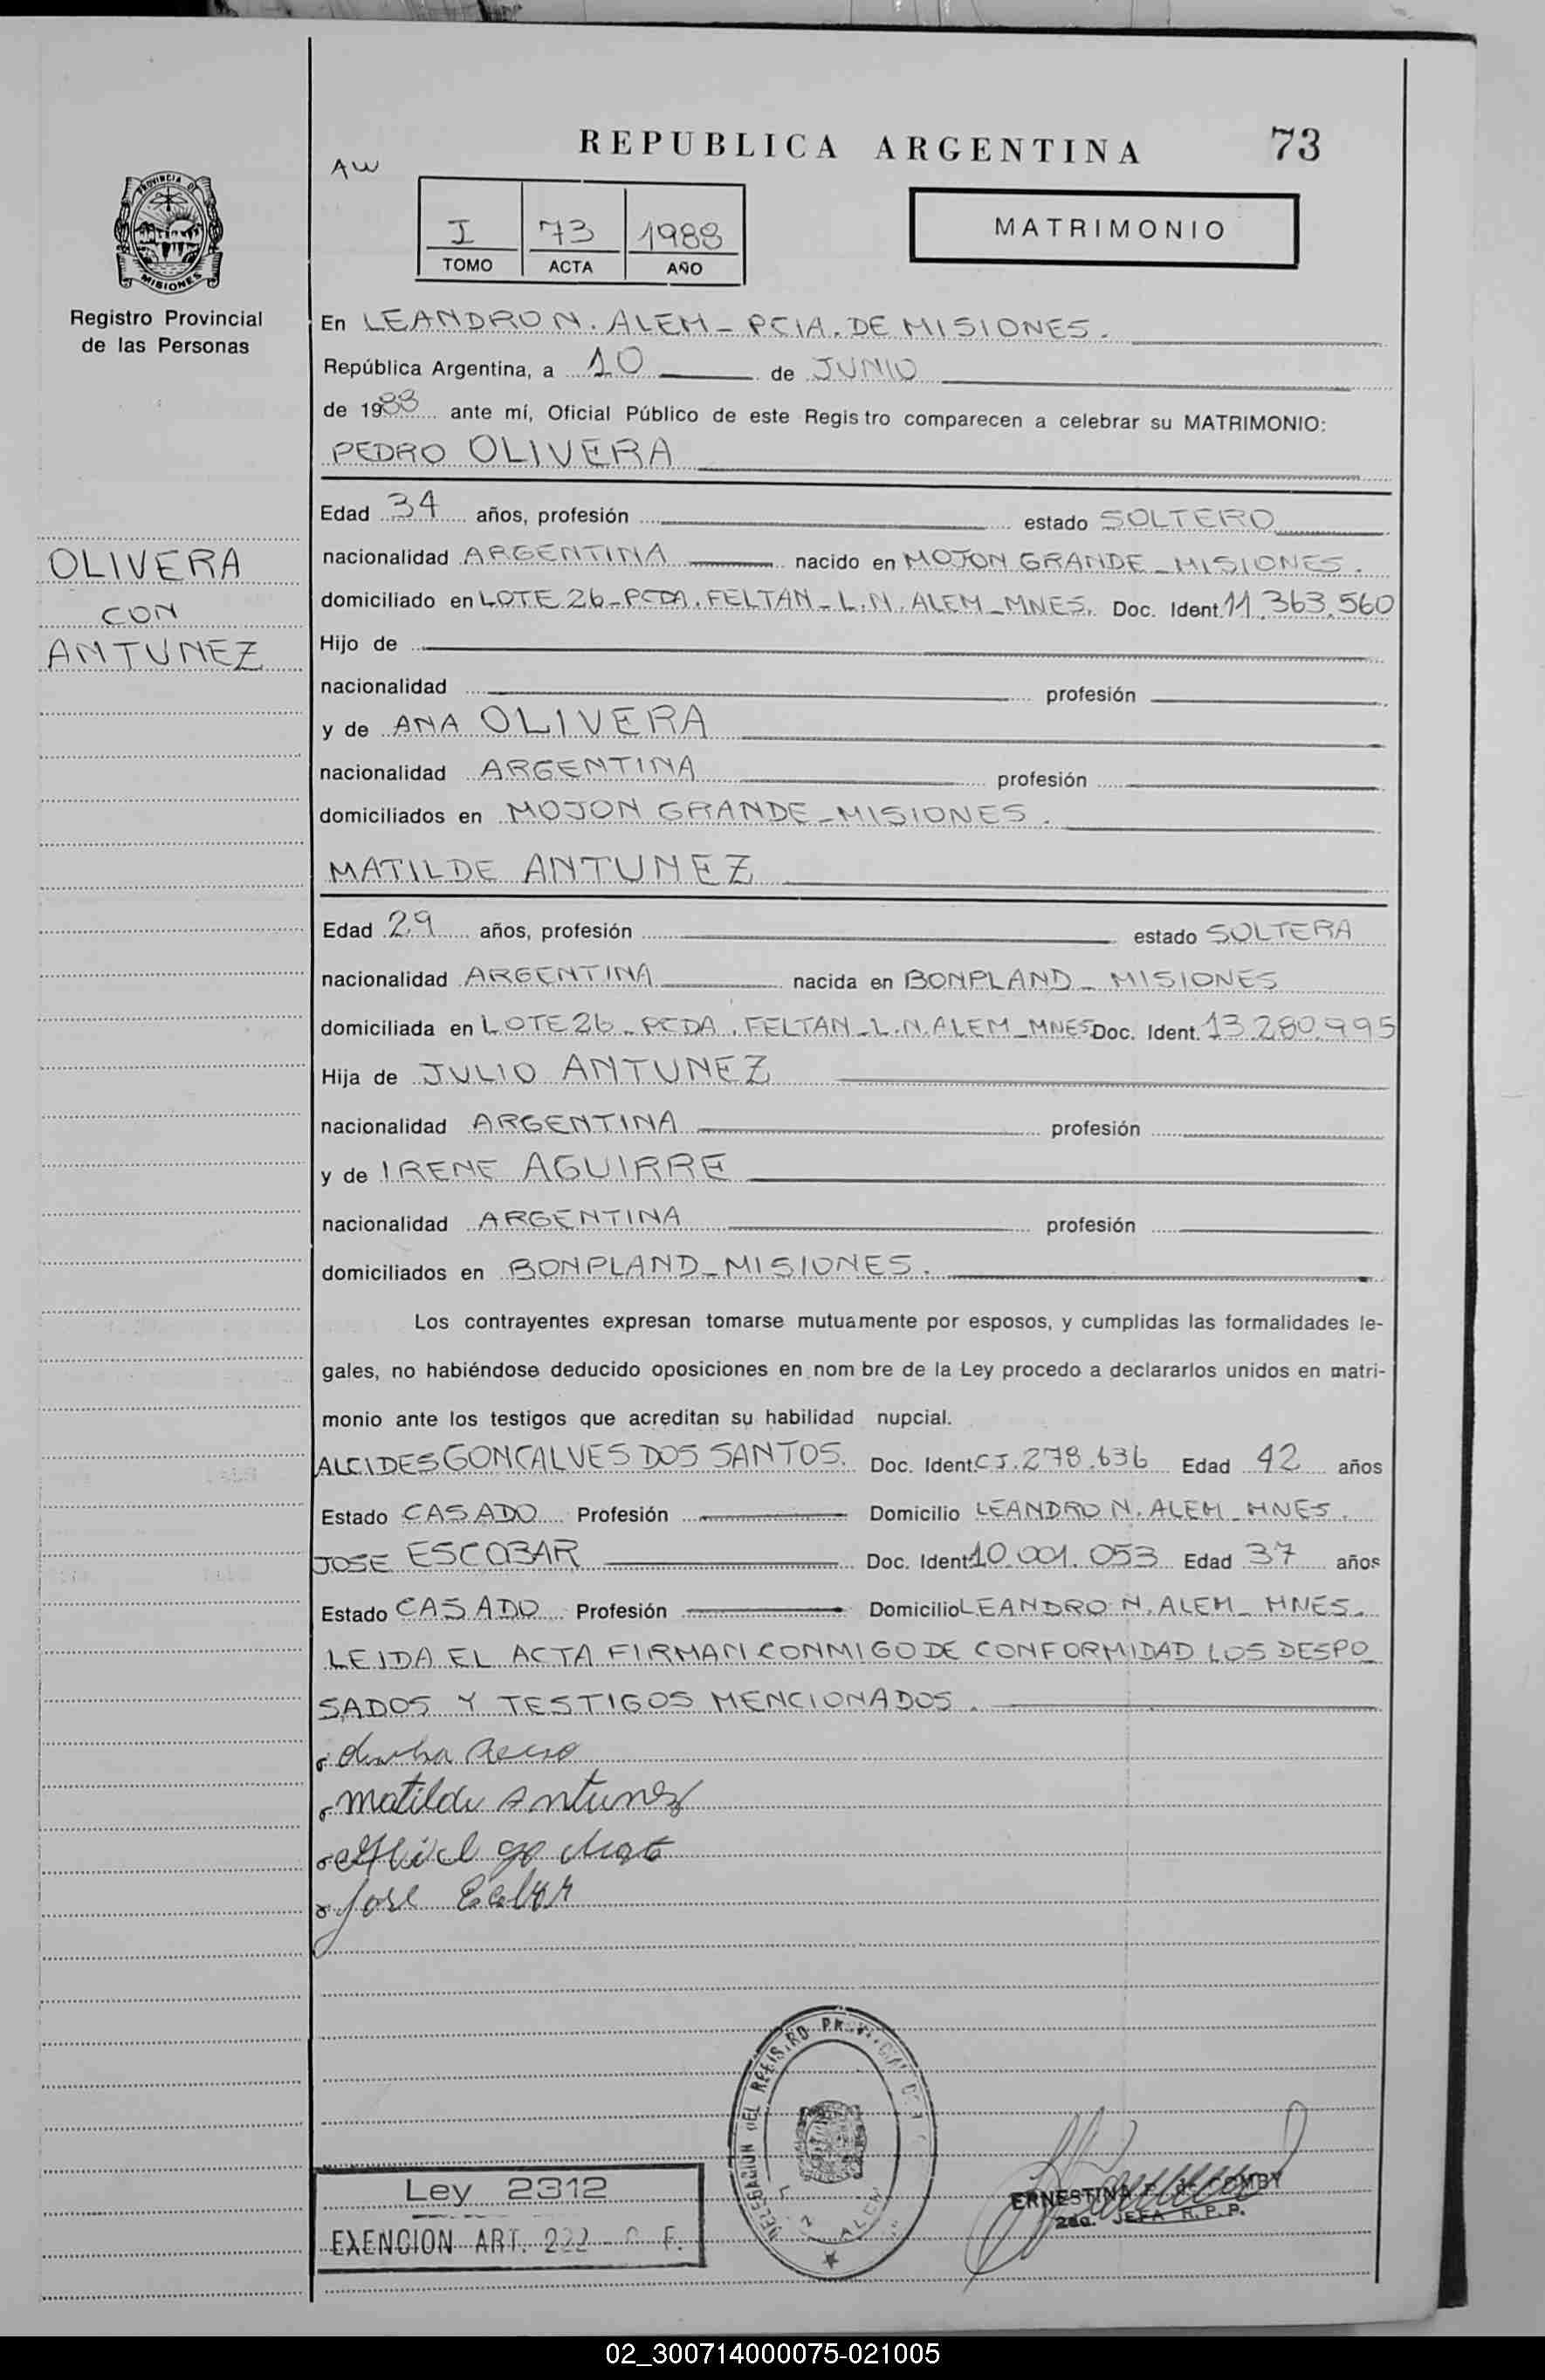 REPUBLICA ARGENTINA
73
AW
I 73 1988
TOMO ACTA AÑO
MATRIMONIO
PROVINCIA DE
MISIONES
Registro Provincial
de las Personas
OLIVERA
CON
ANTUNEZ
En LEANDRO N. ALEM - PCIA. DE MISIONES.
República Argentina, a 10 de JUNIO
de 1988 ante mí, Oficial Público de este Regis tro comparecen a celebrar su MATRIMONIO:
PEDRO OLIVERA
Edad 34 años, profesión estado SOLTERO
nacionalidad ARGENTINA nacido en MOJON GRANDE - MISIONES.
domiciliado en LOTE 26 - PCDA. FELTAN - L.N. ALEM - MNES. Doc. Ident. 11.363.560
Hijo de
nacionalidad profesión
y de ANA OLIVERA
nacionalidad ARGENTINA profesión
domiciliados en MOJON GRANDE - MISIONES.
MATILDE ANTUNEZ
Edad 29 años, profesión estado SOLTERA
nacionalidad ARGENTINA nacida en BONPLAND - MISIONES
domiciliada en LOTE 26 - PCDA. FELTAN - L.N. ALEM - MNES Doc. Ident. 13.280.995
Hija de JULIO ANTUNEZ
nacionalidad ARGENTINA profesión
y de IRENE AGUIRRE
nacionalidad ARGENTINA profesión
domiciliados en BONPLAND - MISIONES.
Los contrayentes expresan tomarse mutuamente por esposos, y cumplidas las formalidades le-
gales, no habiéndose deducido oposiciones en nom bre de la Ley procedo a declararlos unidos en matri-
monio ante los testigos que acreditan su habilidad nupcial.
ALCIDES GONCALVES DOS SANTOS. Doc. Ident. CI. 278.636 Edad 42 años
Estado CASADO Profesión Domicilio LEANDRO N. ALEM - MNES.
JOSE ESCOBAR Doc. Ident. 10.001.053 Edad 37 años
Estado CASADO Profesión Domicilio LEANDRO N. ALEM - MNES.
LEIDA EL ACTA FIRMAN CONMIGO DE CONFORMIDAD LOS DESPO
SADOS Y TESTIGOS MENCIONADOS.
Matilde Antunez
Jose
DELEGACION DEL REGISTRO PROVINCIAL DE
L. N. ALEM
Ley 2312
EXENCION ART. 222 - C. F.
ERNESTINA F. de COMBY
2da. JEFA R. P. P.
02_300714000075-021005